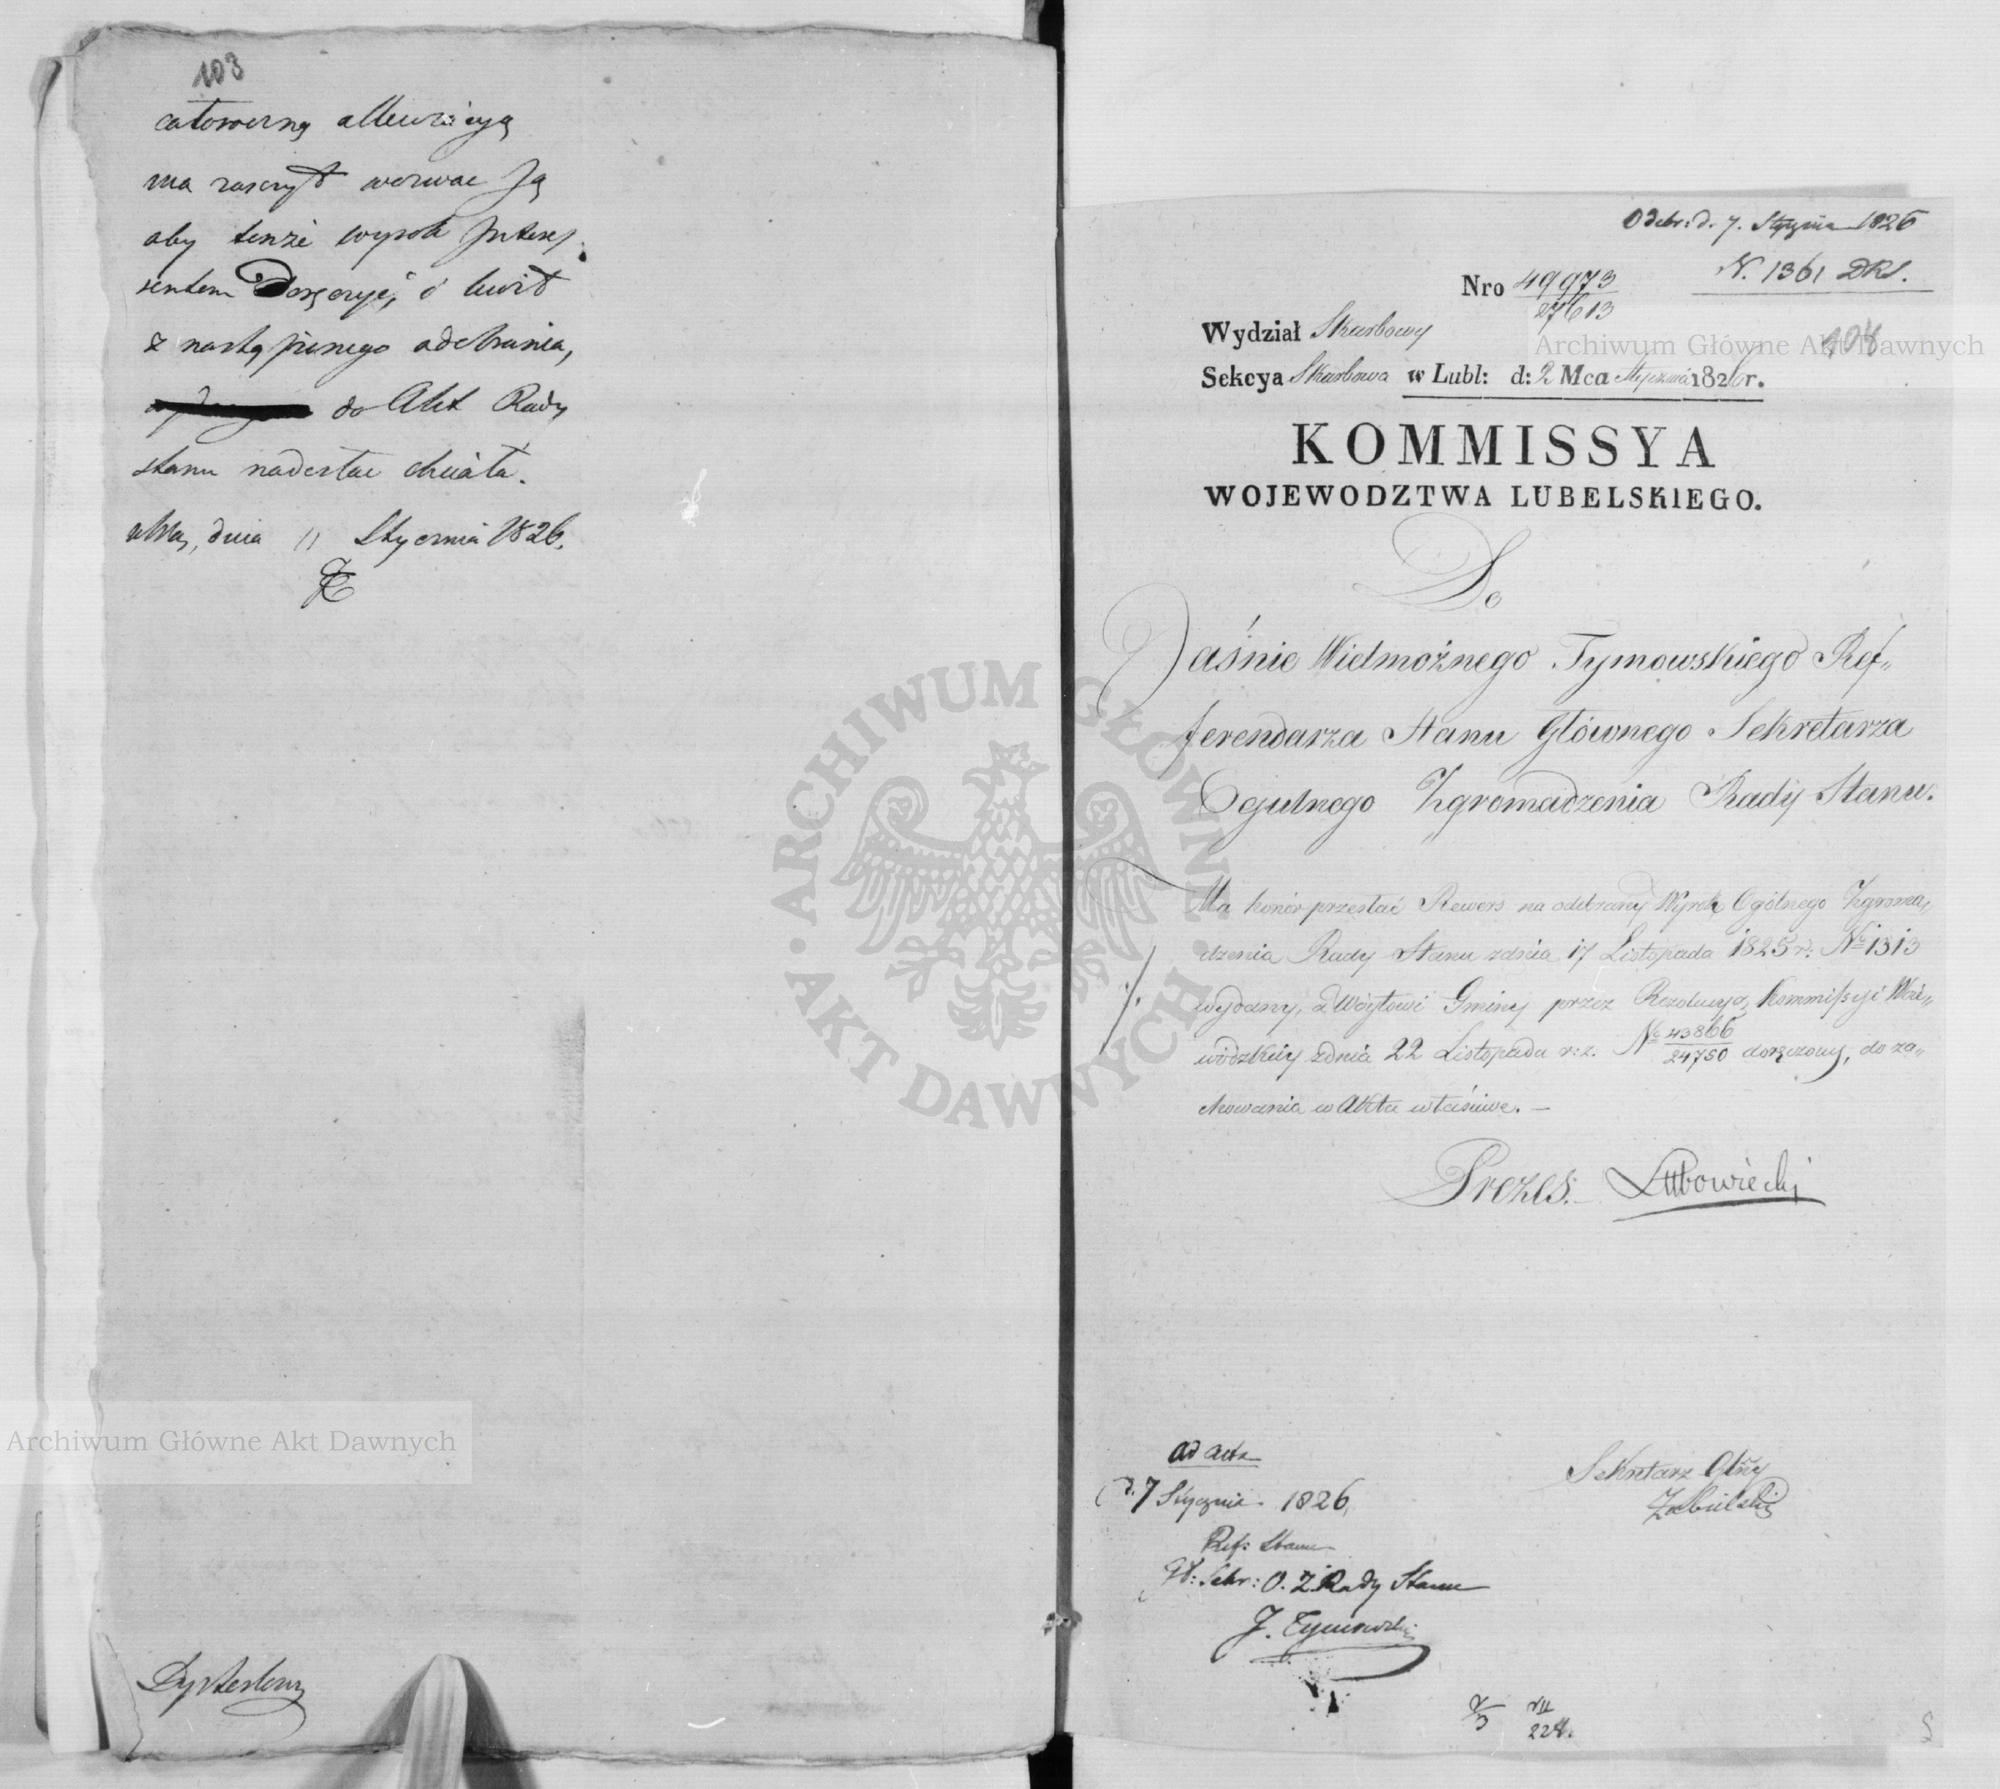 103
ma zaszczyt wezwać Ją
aby tenże wyrok interes-
sentom doręczyć, i kwit
z nastąpionego odebrania,
do Akt Rady
Stanu nadesłać chciała.
dnia 11 Stycznia 1826.
Archiwum Główne Akt Dawnych
Odebr: d. 7. Stycznia 1826
N. 1361 DRS.
Nro 49973
27613
Wydział Skarbowy
Archiwum Główne Akt Dawnych
104
Sekcya Skarbowa w Lubl: d: 2 Mca Stycznia 1826 r.
KOMMISSYA
WOJEWODZTWA LUBELSKIEGO.
Do
Jaśnie Wielmożnego Tymowskiego Ref-
ferendarza Stanu Głównego Sekretarza
Ogulnego Zgromadzenia Rady Stanu.
Ma honor przesłać Rewers na odebrany Wyrok Ogólnego Zgroma-
dzenia Rady Stanu z dnia 17 Listopada 1825 r: No 1313
wydany, a Wójtowi Gminy przez Rezolucyą Kommissyi Woie-
wódzkiey z dnia 22 Listopada r: z. No 43866
24750 doręczony, do za-
chowania w Akta właściwe. —
Prezes. Lubowiecki
ad acta
d. 7 Stycznia 1826.
Ref: Stanu
Gł: Sekr: O. Z. Rady Stanu
J. Tymowski
Sekretarz Głny
Zabielski
VII
224.
ARCHIWUM GŁÓWNE AKT DAWNYCH